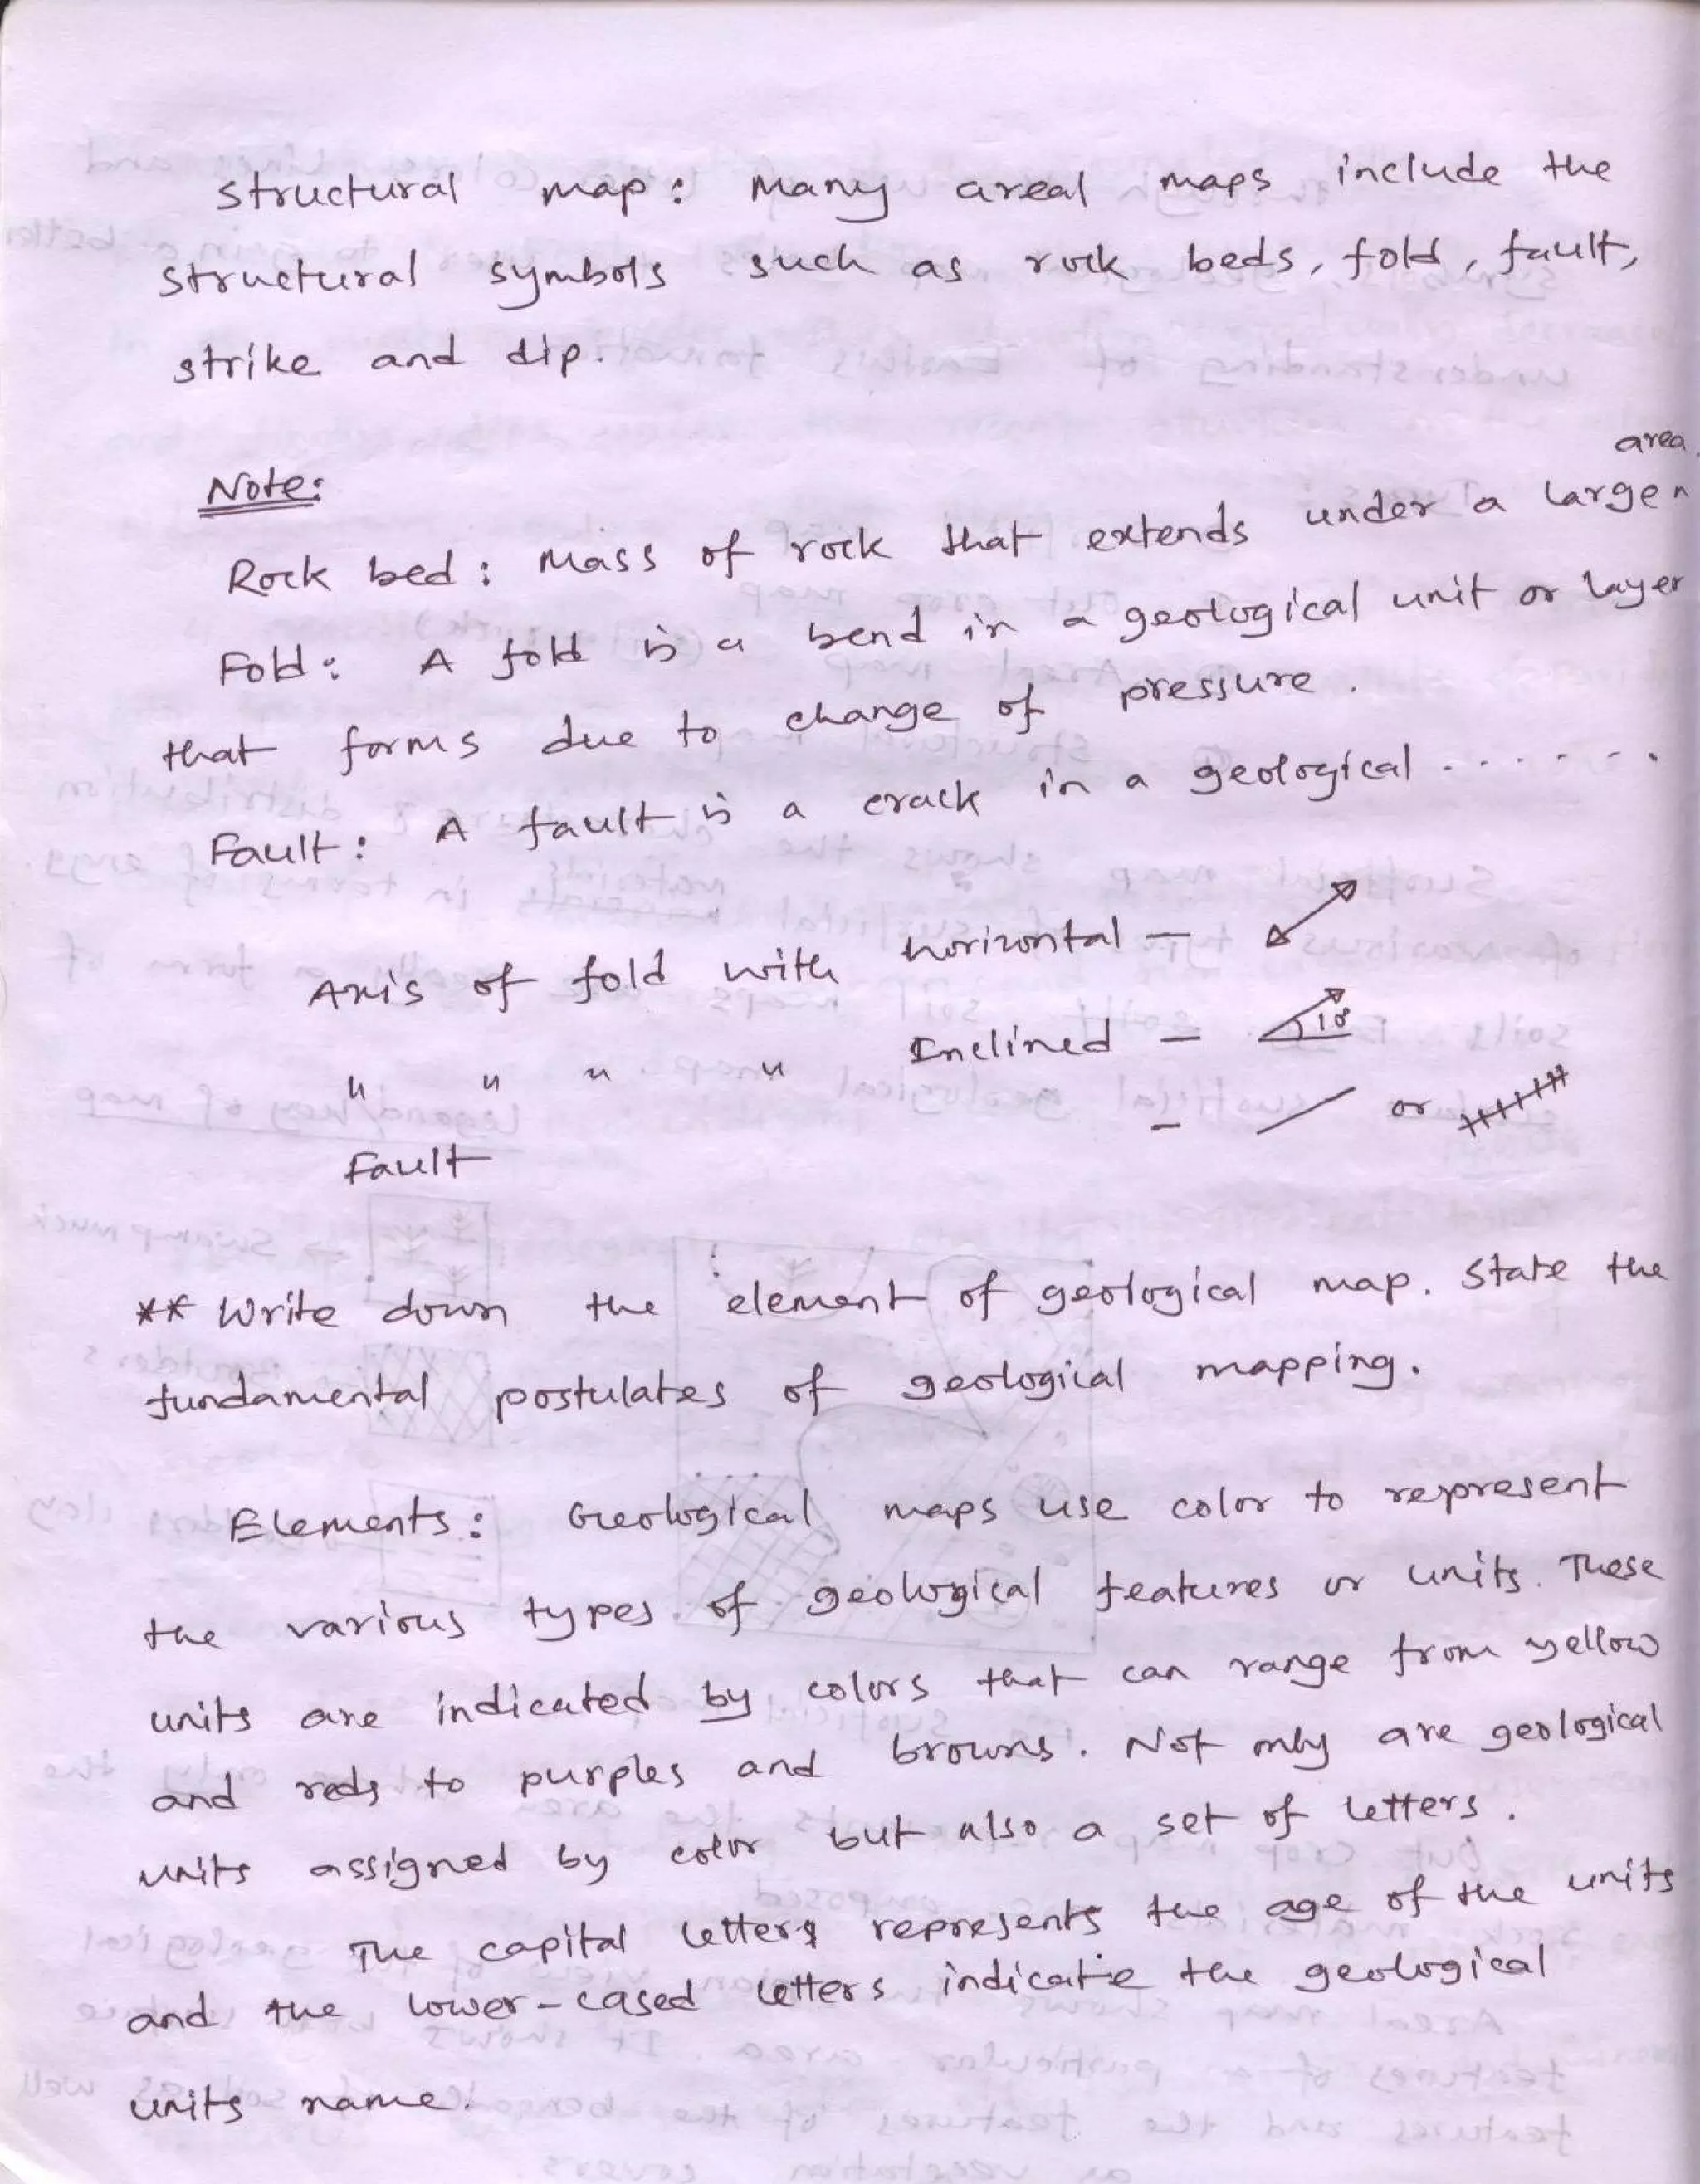 Structural map: Many areal maps include the
structural symbols such as rock beds, fold, fault,
strike and dip.
Note:
Rock bed: Mass of rock that extends under a large area.
Fold: A fold is a bend in a geological unit or layer
that forms due to change of pressure.
Fault: A fault is a crack in a geological .......
Axis of fold with horizontal –
" " " " Inclined – 10°
Fault – or
** Write down the element of geological map. State the
fundamental postulates of geological mapping.
Elements: Geological maps use color to represent
the various types of geological features or units. These
units are indicated by colors that can range from yellow
and reds to purples and browns. Not only are geological
units assigned by color but also a set of letters.
The capital letters represents the age of the units
and the lower-cased letters indicate the geological
units name.